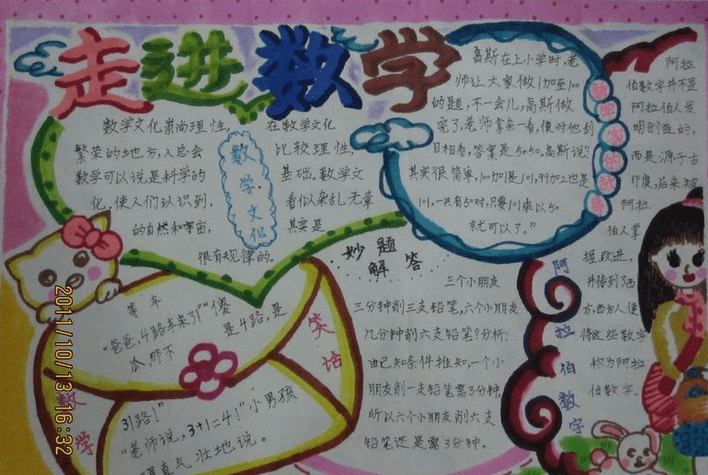 走进数学
数学文化崇尚理性,
繁荣的地方,人总会
数学可以说是科学的
化,使人们认识到,
的自然和宇宙,
很有规律的。
数学文化
在数学文化
比较理性,
基础。数学文
看似杂乱无章
其实是
高斯在上小学时,老
师让大家做1加至100
的题,不一会儿,高斯做
完了,老师拿来一看,便对他刮
目相看,答案是5050。高斯说:
其实很简单,100加1是101,99加2也是
101,一共有50对,只要101乘以50
就可以了。”
阿拉
伯数字并不是
阿拉伯人发
明创造的,
而是源于古
印度,后来被
阿拉
伯人掌
握、改进,
并传到了西
方,西方人便
将这些数字
称为阿拉
伯数字。
阿拉伯数字
妙题
解答
三个小朋友
三分钟削三支铅笔,六个小朋友
几分钟削六支铅笔?分析:
由已知条件推知,一个小
朋友削一支铅笔需3分钟,
所以六个小朋友削六支
铅笔还是需3分钟。
数学
笑话
等车
“爸爸,4路车来了!”“傻
瓜,那不
是4路,是
31路!”
“老师说,3+1=4!”小男孩
理直气壮地说。
2011/10/13 16:32